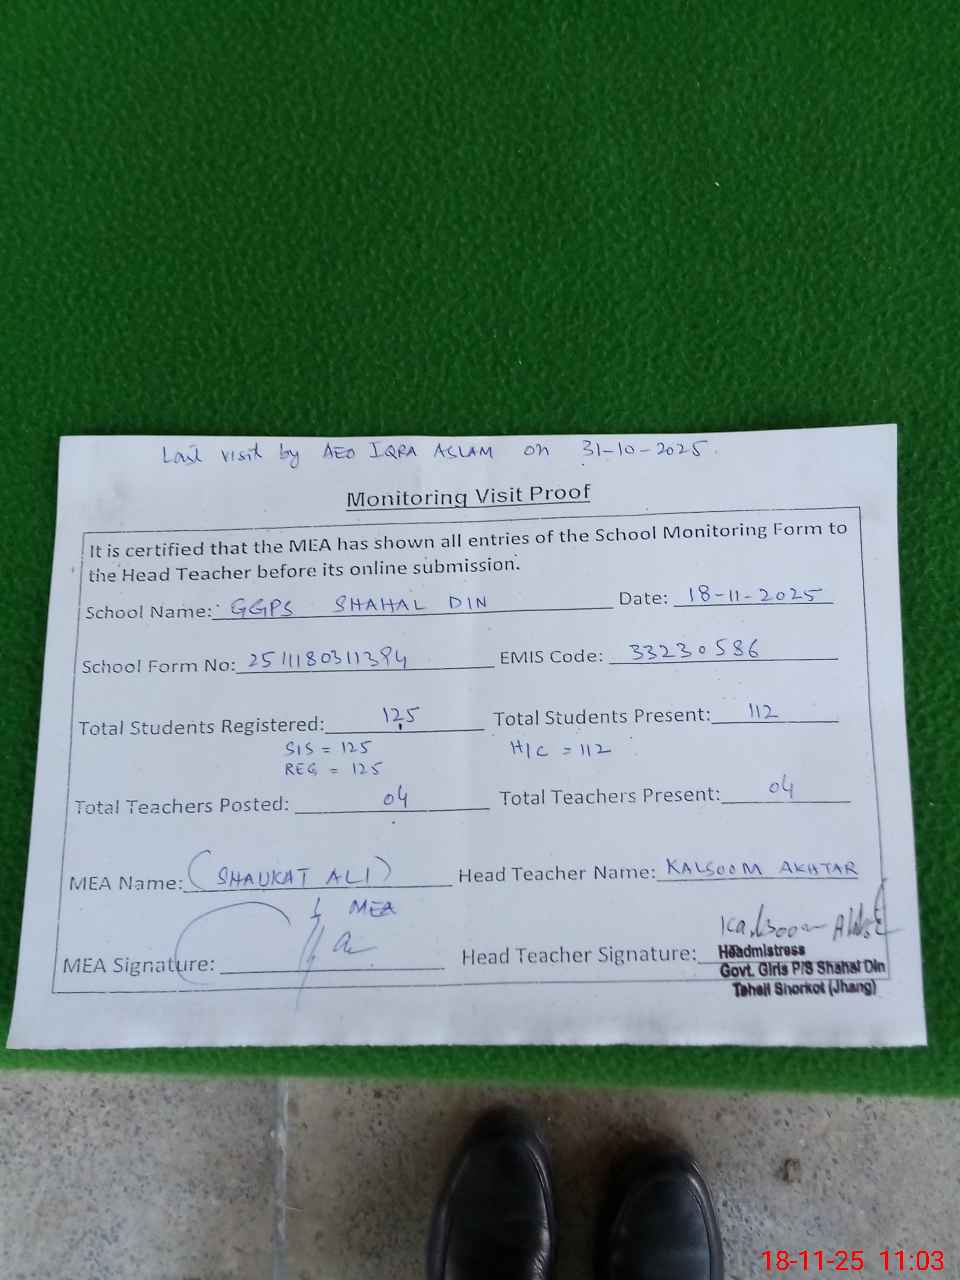 Last visit by AEO IQRA ASLAM on 31-10-2025.
Monitoring Visit Proof
It is certified that the MEA has shown all entries of the School Monitoring Form to
the Head Teacher before its online submission.
School Name: GGPS SHAHAL DIN Date: 18-11-2025
School Form No: 2511180311394 EMIS Code: 33230586
Total Students Registered: 125 Total Students Present: 112
SIS = 125 H/C = 112
REG = 125
Total Teachers Posted: 04 Total Teachers Present: 04
MEA Name: (SHAUKAT ALI) Head Teacher Name: KALSOOM AKHTAR
MEA
MEA Signature: Head Teacher Signature: Kalsoom
Headmistress
Govt. Girls P/S Shahal Din
Tehsil Shorkot (Jhang)
18-11-25 11:03